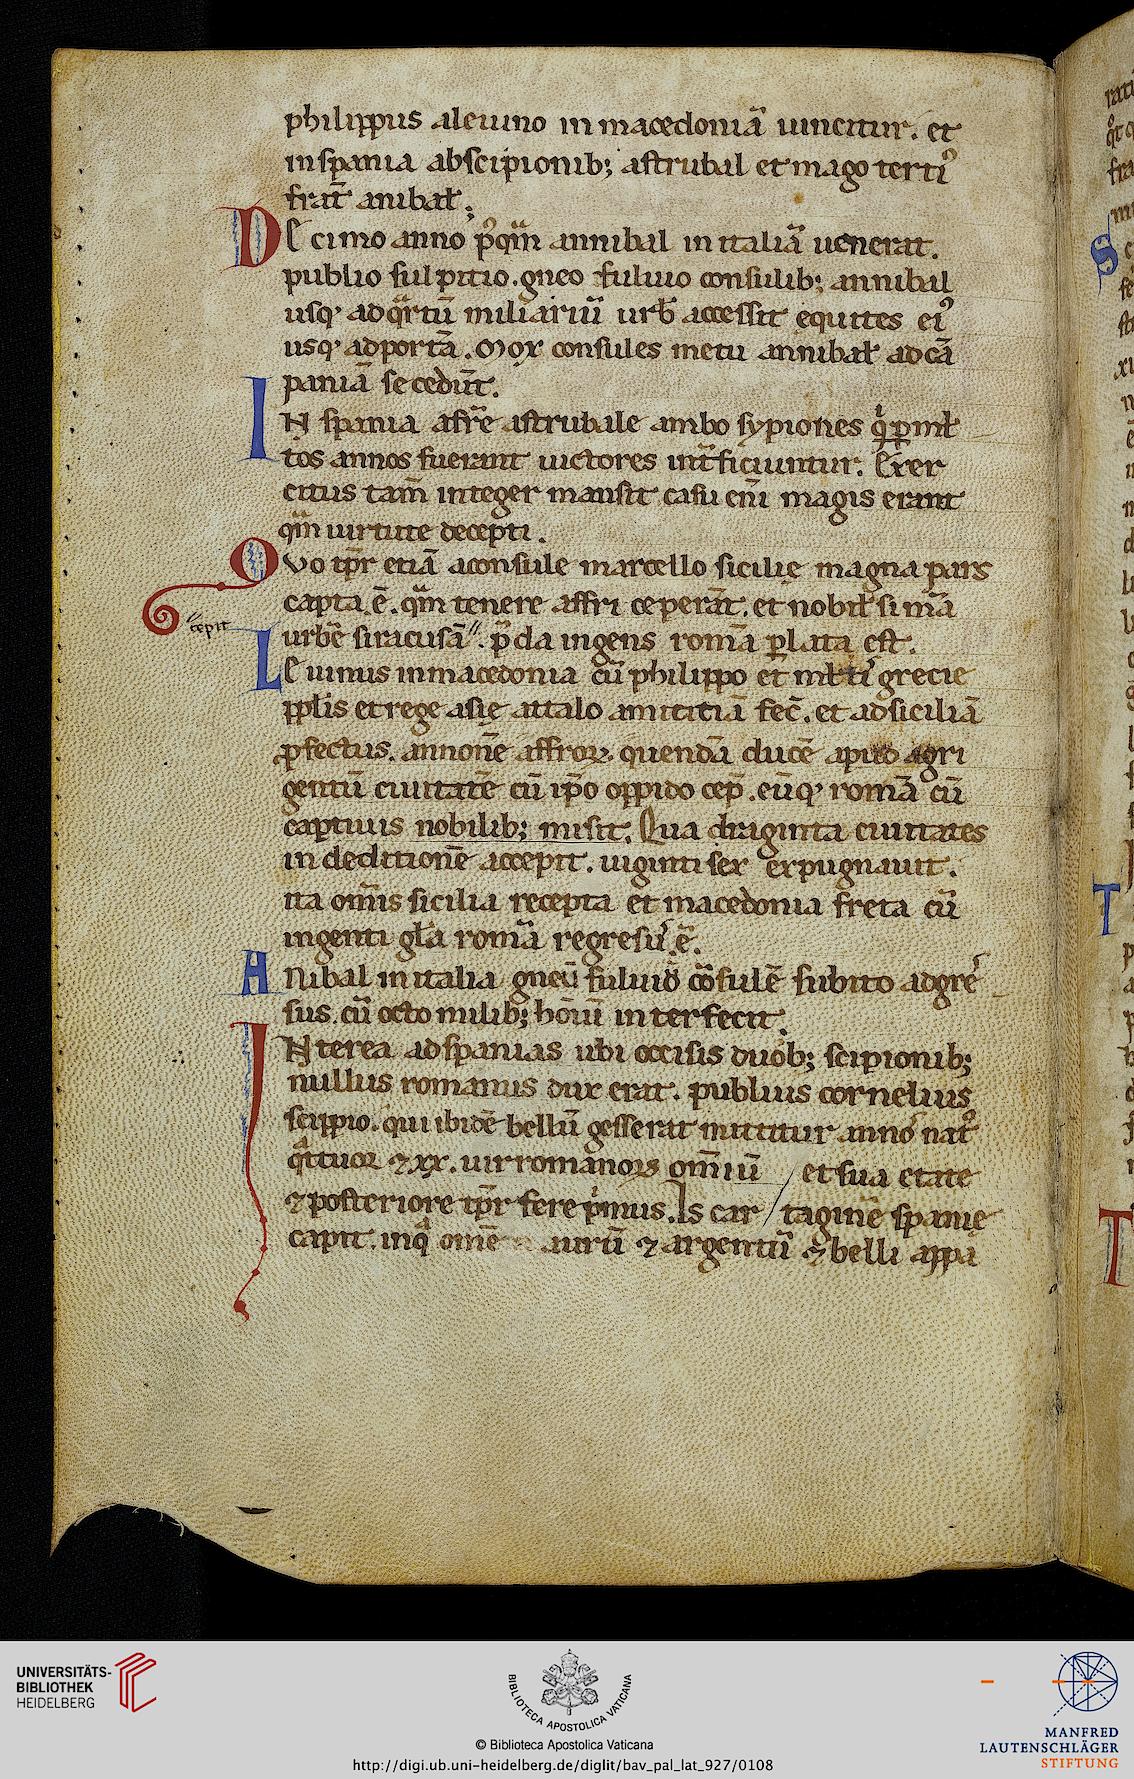 philippus aleuino in macedoniā uincitur. et
in spania abscipionib; astrubal et mago terti᾽
frat̄ anibał.
DE cimo anno p᾽qm̄ annibal in italiā uenerat.
publio sulpitio. gneo fuluio consulib; annibal
usq᾽ adqrtū miliariū urb̄ accessit equites ei᾽
usq᾽ adportā. Mox consules metu annibał ad cā
paniā secedūt.
IN spania afrē astrubale ambo sypiones q̇ p̱ mł
tos annos fuerant uictores int̄ficiuntur. Exer
citus tam̄ integer mansit casu eni᷒ magis erant
qm̄ uirtute decepti.
QVo tp̄r etiā aconsule marcello sicilię magna pars
capta.ē. qm̄ tenere affri ceperāt. et nobiłsimā
cepit
urbē siracusā". p̄da ingens romā p̱lata est.
LEuinus inmacedonia cū philippo et młtı᷒ grecie
pplis et rege asię attalo amicitiā fec̄. et adsiciliā
ꝓfectus. annonē affroꝝ. quendā ducē apud agri
gentū ciuitatē cū ip̄o oppido cep̄. eūq᾽ romā cū
captiuis nobilib; misit. Qua draginta ciuitates
in deditionē accepit. uiginti sex expugnauit.
ita omīs sicilia recepta et macedonia freta cū
ingenti gła romā regresu᷒.ē.
ANibal in italia gneū fuluiō cōsulē subito adgre᷒
sus. cū octo milib; hoīuı᷒ interfecit.
INterea ad spanias ubi occisis duob; scipionib;
nullus romanus dux erat. publius cornelius
scippio. qui ibidē bellū gesserat mittitur anno nat᾽
qttuor ⁊ xx. uir romanoꝝ omniū / et sua etate
⁊ posteriore tp̄r fere pimus. Is car / taginē spanię
capit. inq᷒ omē aurū ⁊ argentū ⁊ belli appa
UNIVERSITÄTS-
BIBLIOTHEK
HEIDELBERG
BIBLIOTECA APOSTOLICA VATICANA
© Biblioteca Apostolica Vaticana
http://digi.ub.uni-heidelberg.de/diglit/bav_pal_lat_927/0108
MANFRED
LAUTENSCHLÄGER
STIFTUNG